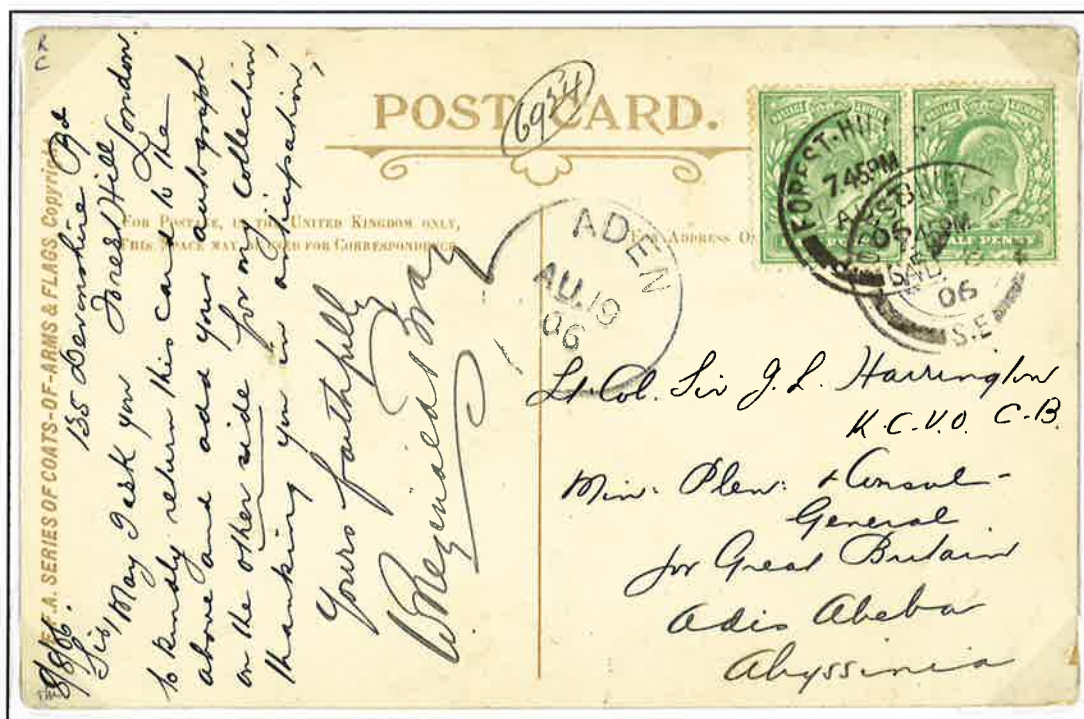 POST CARD.
6924
FOR POSTAGE, IN THE UNITED KINGDOM ONLY,
THIS SPACE MAY BE USED FOR CORRESPONDENCE
FOR ADDRESS
F.A. SERIES OF COATS-OF-ARMS & FLAGS. Copyright
135 Devonshire Rd
Forest Hill London.
8/8/06.
Sir, May I ask you
to kindly return this card to the
above and add your autograph
on the other side for my collection
thanking you in anticipation,
Yours faithfully
W Reginald Bray
FOREST-HILL
7.45PM
AU 8
06
S.E.
FOREST-HILL S.
7.45PM
06
S.E
HALF PENNY
ADEN
AU.19
06
Lt Col. Sir J. L. Harrington
K.C.V.O. C.B.
Min: Plen: & Consul-
General
for Great Britain
Adis Abeba
Abyssinia